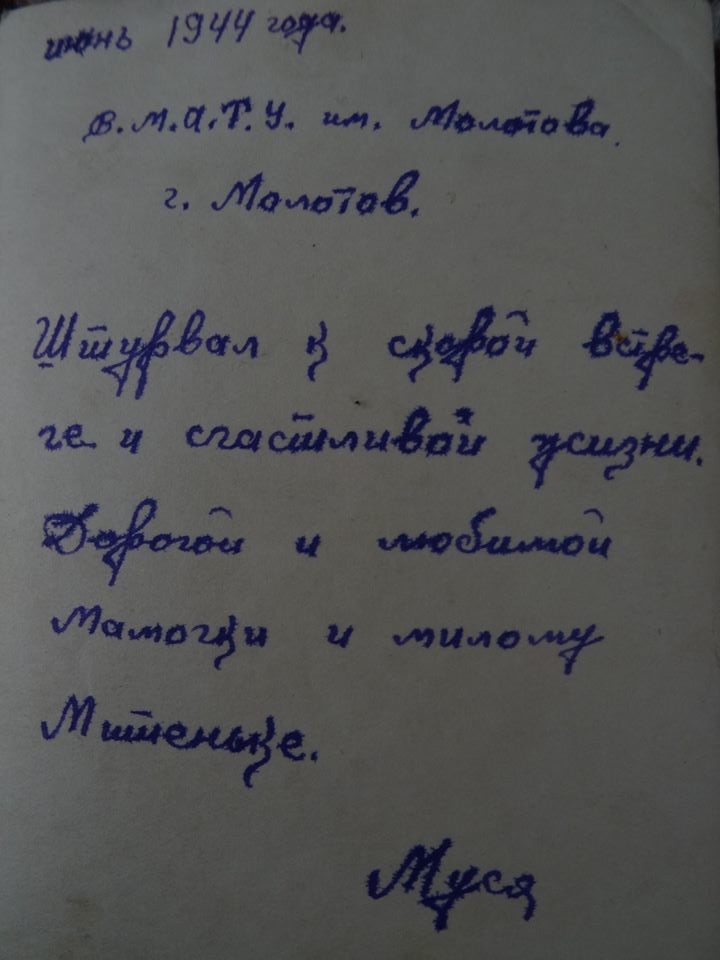 июнь 1944 года.
В.М.А.Т.У. им. Молотова.
г. Молотов.
Штурвал к скорой встре-
че и счастливой жизни.
Дорогой и любимой
Мамочки и милому
Митеньке.
Муся